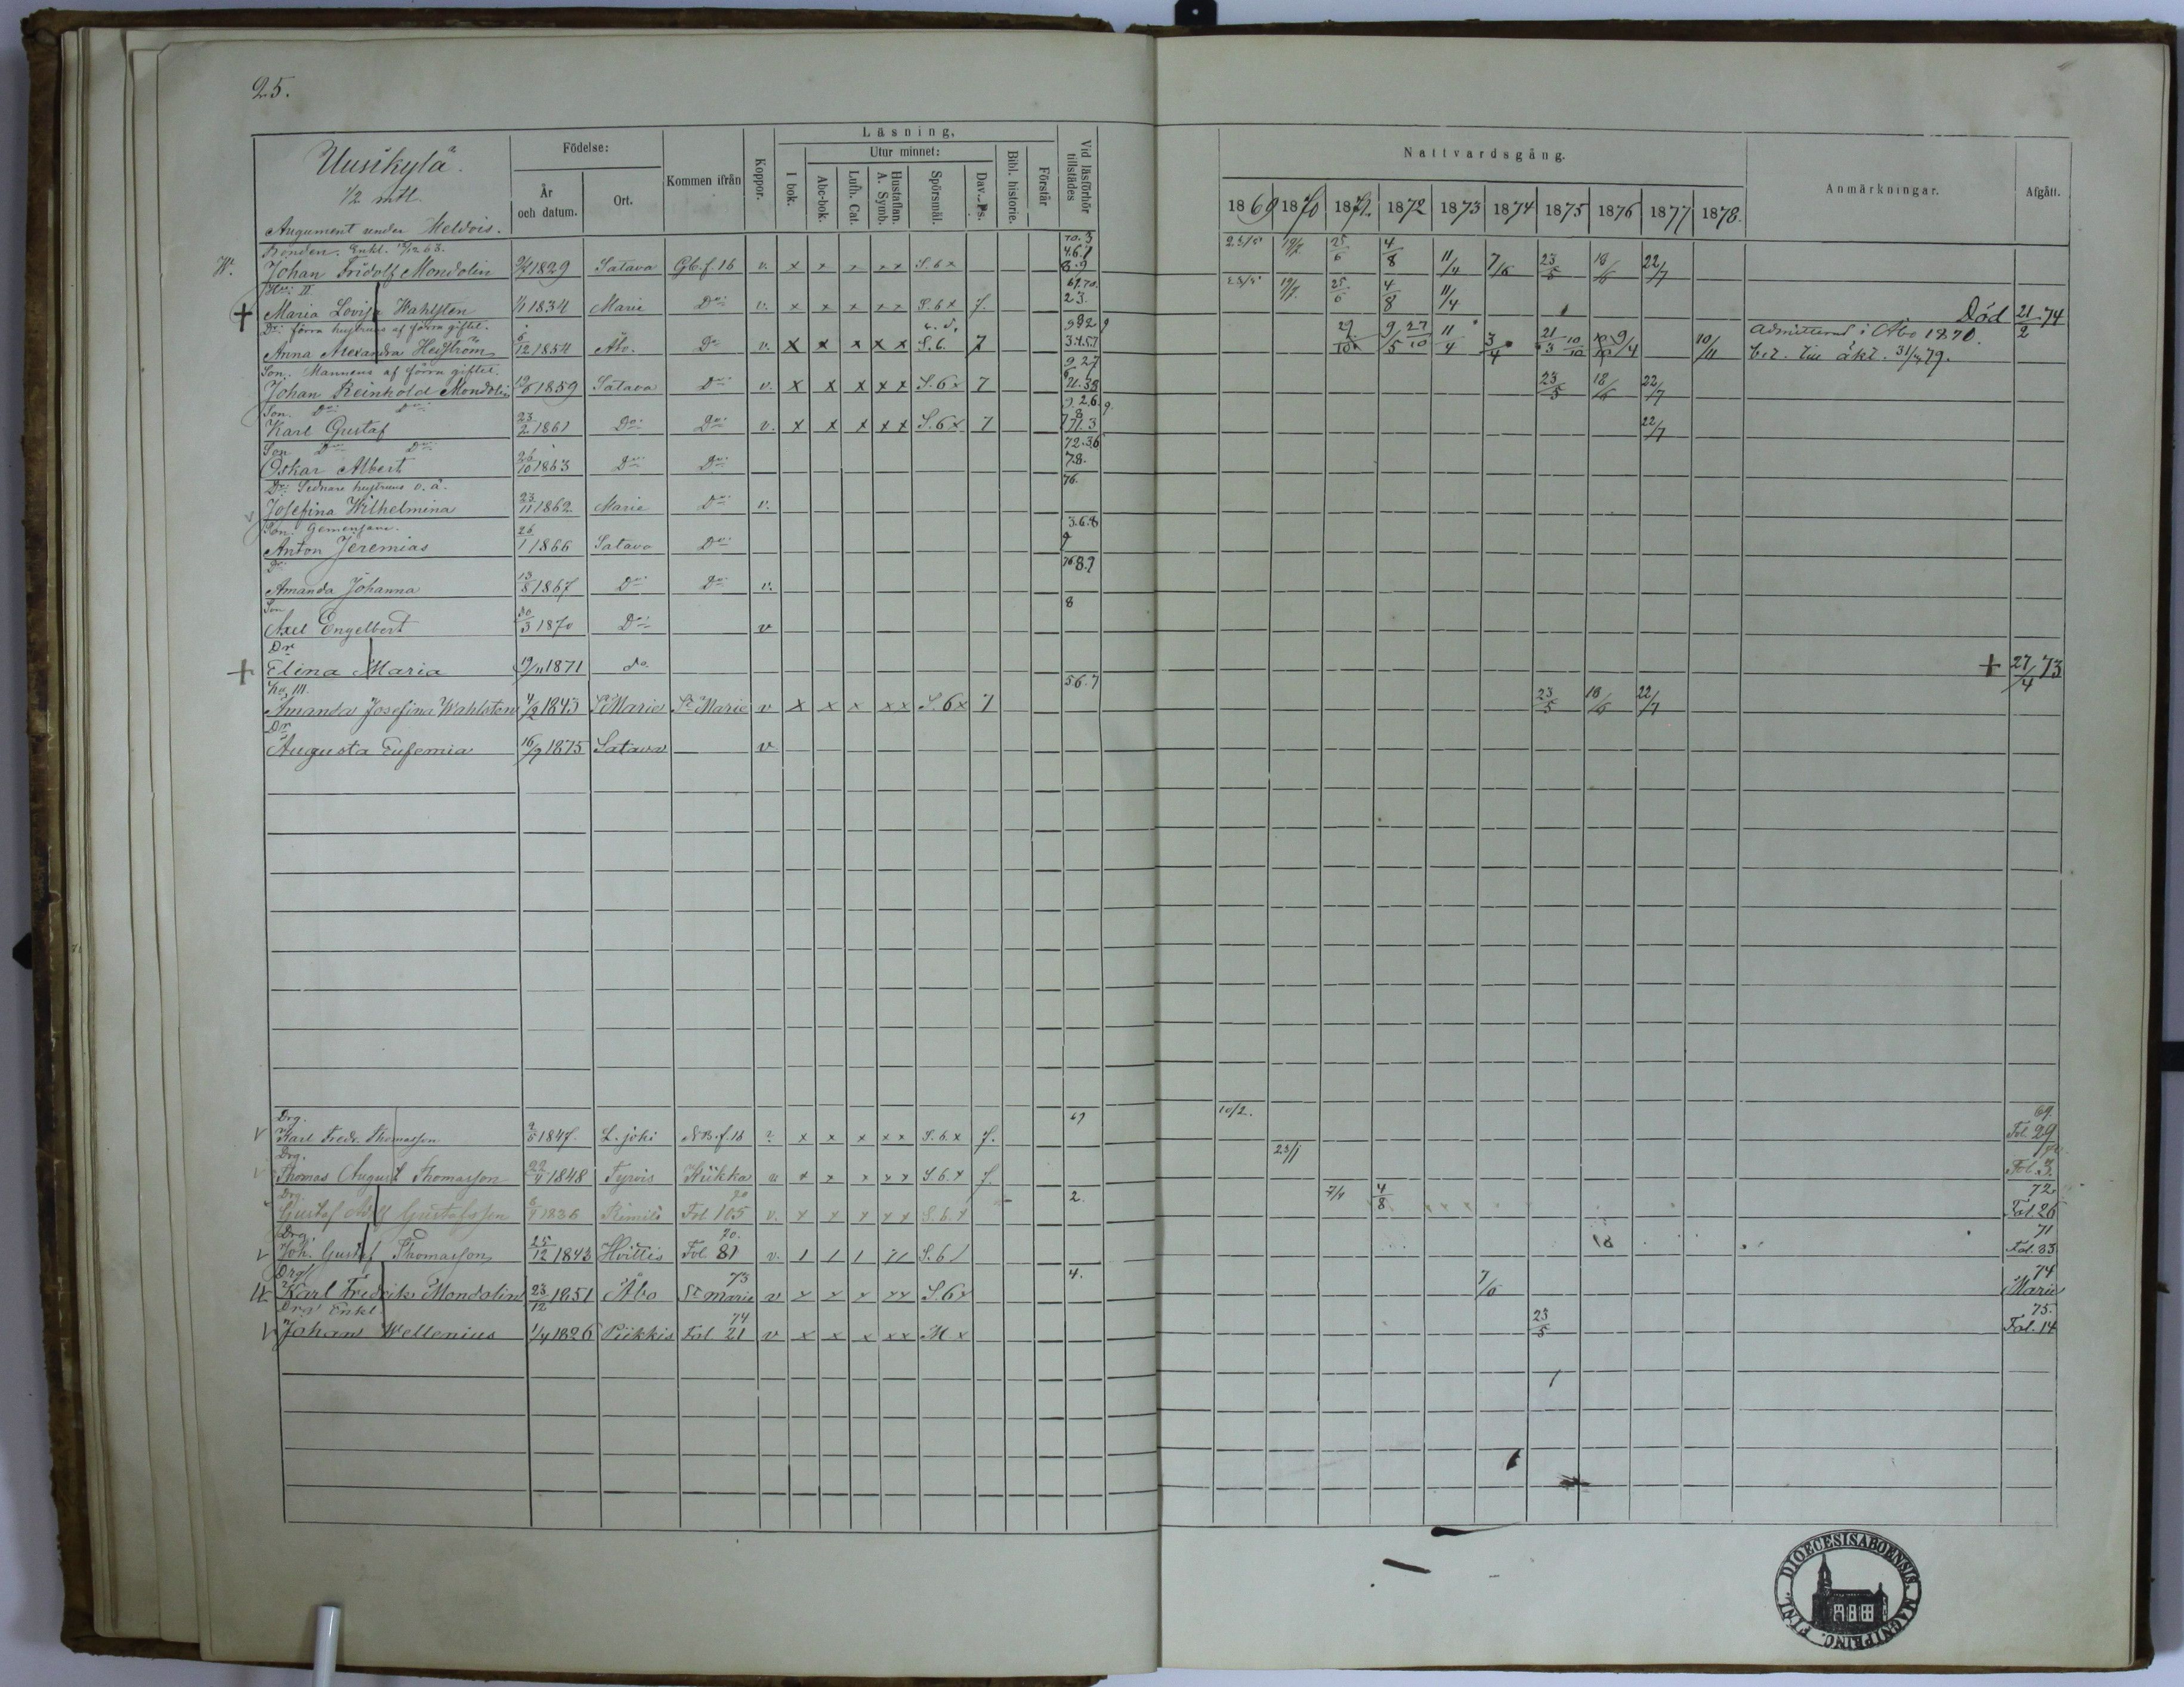 25.
Uusikylä.
1/2 mtl.
Augument under Meldois.
Födelse:
År och datum.
Ort.
Kommen ifrån
Koppor.
Läsning,
I bok.
Utur minnet:
Abc-bok.
Luth. Cat.
Hustaflan. A. Symb.
Spörsmål.
Dav. Ps.
Bibl. historie.
Förstår
Vid läsförhör tillstädes
Nattvardsgång.
1869 1870 1871 1872 1873 1874 1875 1876 1877 1878.
Anmärkningar.
Afgått.
Bonden. Enkl.
Johan Fridolf Mondolin 1829 Satava Gb. f. 16 v. x x x x x S. 6 x 23/5 25/6 4/8 11/4 7/6 23/5 18/6 22/7
Hu: II
+ Maria Lovisa Wahlsten 1834 Marie Do: v. x x x x x S. 6 x 7. 25/6 4/8 11/4 Död 21/2 74
Dr: förra hustruns af förra giftet.
Anna Alexandra Hedström 12 1854 Åbo. Do v. x x x x x S. 6. 7 9/5 27/10 11/4 3/4 21/3 10/10 9/4 10/11 admitterad i Åbo 1870.
bet. till äkt. 79.
Son. Mannens af förra giftet.
Johan Reinhold Mondolin 1859 Satava Do: v. x x x x x S. 6 x 7 23/5 18/6 22/7
Son. Do: Do:
Karl Gustaf 23/2 1861 Do: Do: v. x x x x x S. 6 x 7 22/7
Son Do: Do:
Oskar Albert 26/10 1863 Do: Do: 78.
Dr: Sednare hustruns o. ä.
Josefina Wilhelmina 23/11 1862 Marie Do: v. 76.
Son. Gemensam.
Anton Jeremias 26/1 1866 Satava Do: 3.6.8
Dr.
Amanda Johanna 13/8 1867 Do: Do: v.
Son
Axel Engelbert 30/3 1870 Do: v 8
Dr
+ Elina Maria 19/11 1871 do. + 27/4 73
Hu, III.
Amanda Josefina Wahlsten 4/2 1843 St Marie St Marie v x x x x x S. 6 x 7 56.7 23/5 18/6 22/7
Dr
Augusta Eufemia 16/9 1875 Satava v
Drg.
v Karl Fredr. Thomasson 1847. L. joki f. 18 x x x x x S. 6. x 7. 69 10/2. 69.
Fol. 29
Drg.
v Thomas August Thomasson 1848 Tyrvis x x x x x S. 6. x 7. 23/1 Fol. 3.
Drg.
Gustaf Adolf Gustafsson 1836 Rimito Fol 105 v. x x x x x S. 6. x 2. 4/8 72
Fol. 26
Drg.
v Joh. Gustaf Thomasson 25/12 1843 Hvittis 70. Fol 81 v. 1 1 1 1 1 S. 6 71
Fol. 33
Drg.
Karl Fredrik Mondolin 23/12 1851 Åbo 73 St marie v x x x x x S. 6 x 4. 7/6 74
Marie
Drg Enkl.
v Johan Wellenius 1/4 1826 Piikkis 74 Fol 21 v x x x x x M x 23/5 75.
Fol. 14
DIOECESIS ABOENSIS. MAGNI PRINC. FINL.